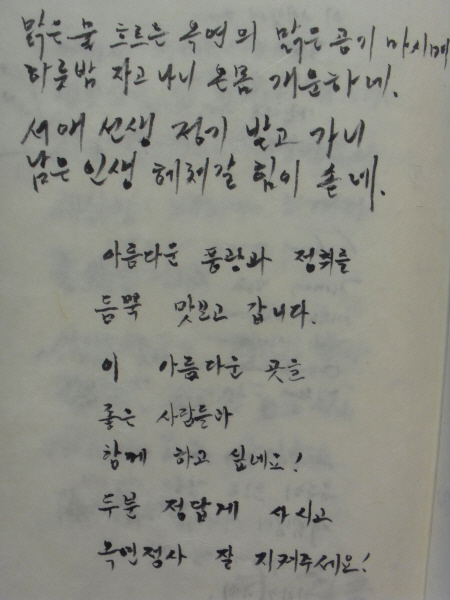 맑은 물 흐르는 옥연의 맑은 공기 마시며
하룻밤 자고 나니 온몸 개운하네.
서애 선생 정기 받고 가니
남은 인생 헤쳐갈 힘이 솟네.
아름다운 풍광과 정취를
듬뿍 맛보고 갑니다.
이 아름다운 곳을
좋은 사람들과
함께 하고 싶네요!
두분 정답게 사시고
옥연정사 잘 지켜주세요!